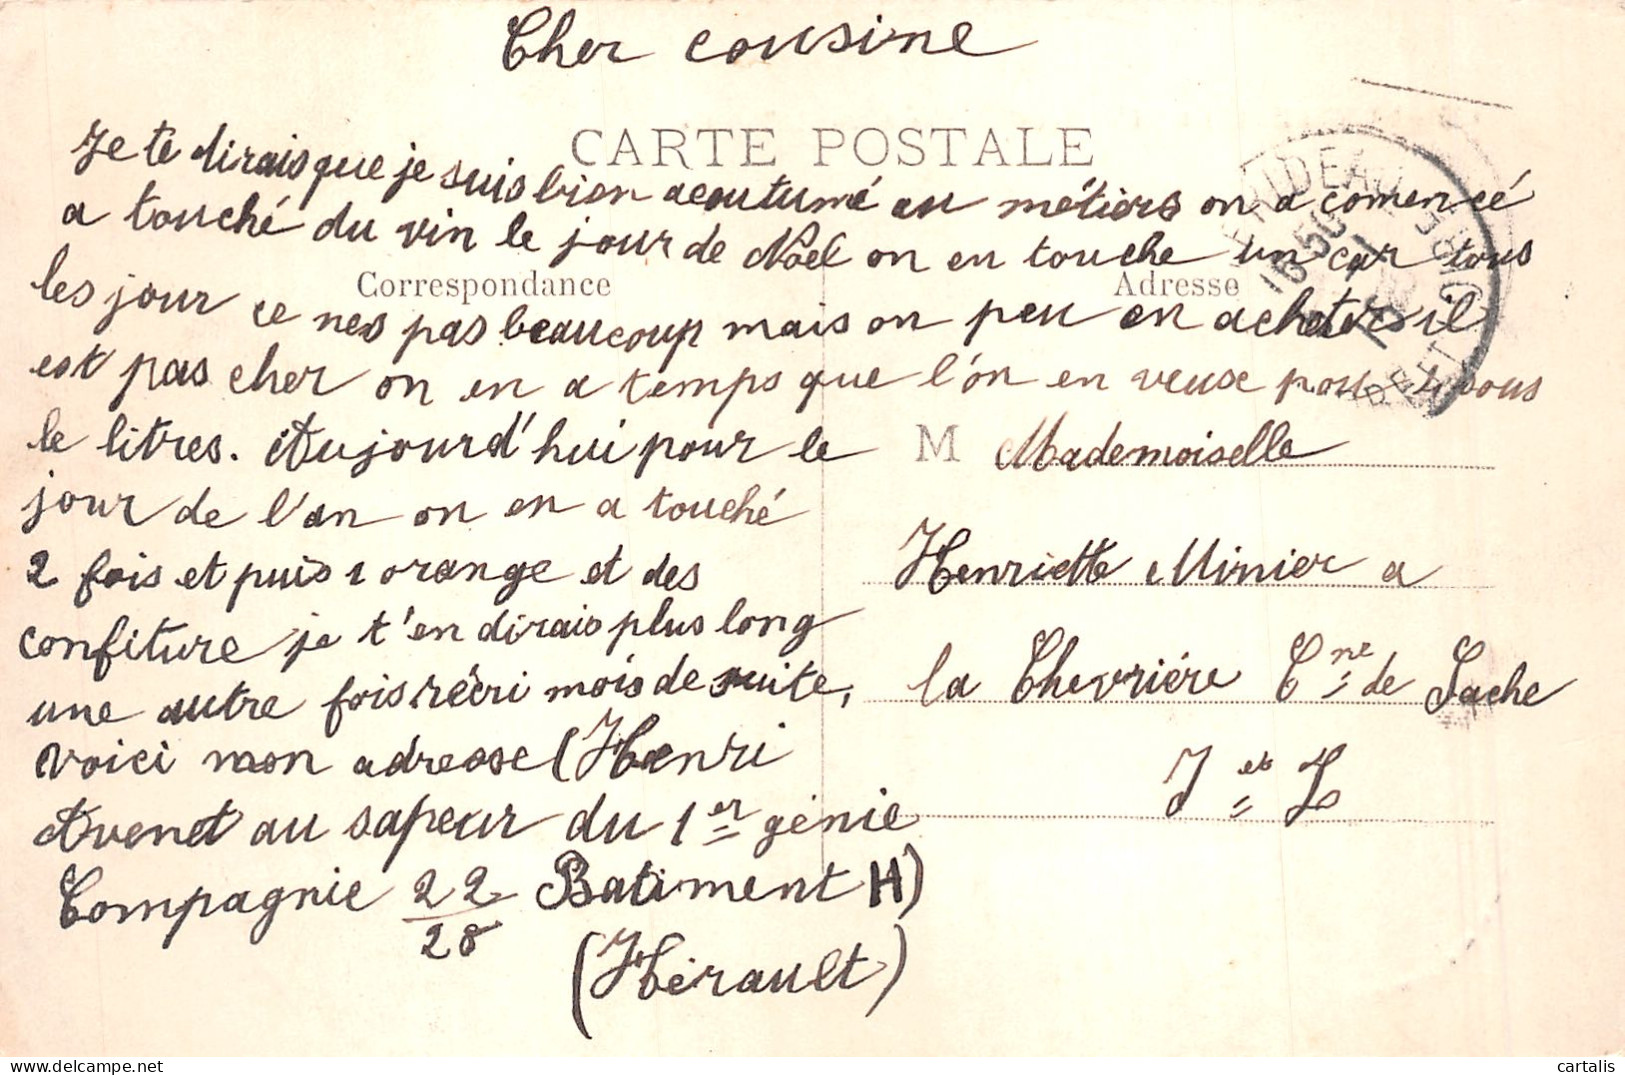 Cher cousine
CARTE POSTALE
Je te dirais que je suis bien acoutumé au métiers on a comencé
a touché du vin le jour de Noel on en touche un car tous
Correspondance
Adresse
les jour ce nes pas beaucoup mais on peu en acheter il
est pas cher on en a temps que l'on en veuse pour 4 sous
le litres. Aujourd'hui pour le
jour de l'an on en a touché
2 fois et puis 1 orange et des
confiture je t'en dirais plus long
une autre fois récri mois de suite,
voici mon adresse (Henri
Avenet au sapeur du 1er génie
Compagnie 22/28 Batiment H)
(Hérault)
M Mademoiselle
Henriette Minier a
la Chevriére Cne de Sache
I et L
cartalis